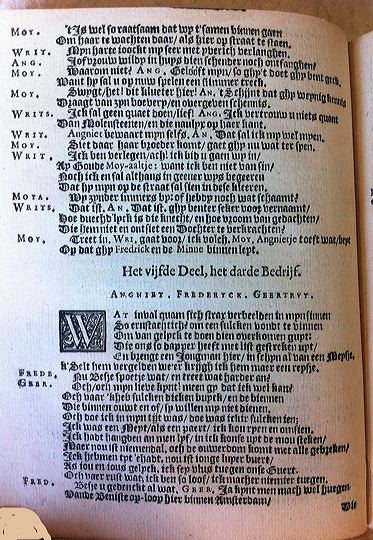 MOY. 't Is wel so raatsaam dat wy t'samen binnen gaen
Om haar te wachten daar/ als hier op straat te staen.
WRIT. Myn harte joockt my seer met pverich verlanghen.
ANG. Jof vrouw wildy in huys dien schender noch ontfanghen?
MOY. Waarom niet? ANG. Gelooft myn/ so ghy't doet ghy bent geck.
Want hy sal u op nuw spelen een slimmer treck.
MOY. Swygt/ het! dit klucter hier! ANG. 't Schijnt dat ghy weynig kennis
Draagt van zyn boevery/ en overgeven schennis.
WRITS. Ick sal geen quaet doen/ lief! ANG. Ick vertrouw u niets quant
Dan Molenstenen/ en die naulyx op haer kant.
WRIT. Angniet bewaart myn selfs, ANG. Dat sal ick my wel myen.
MOY. Siet daar haar broeder komt/ gaet ghy nu wat ter syen.
WRIT. Ick ben verlegen/ ach! ick bid u gaen wy in/
Ay Goude Moy-aaltje: want ick ben niet van sin/
Noch ick en sal althans in geener wys begeeren
Dat hy myn op de straat sal sien in dese kleeren.
MOYA. Wy zynder immers by: of hebdy noch wat schaamt?
WRITS. Dat ist, AN. Dat ist. ghy benter seker voor vernaamt/
Hoe duechdlyck is die knecht/ en hoe vroom van gedachten/
Die hem niet en ontsiet een Dochter te verkrachten?
MOY. Treet in, WRI. gaat voor/ ick volch, MOY. Angnietje toeft wat/beyt
Op dat ghy Fredrick en de Minne binnen lept.
Het vijfde Deel, het darde Bedrijf.
ANGNIET. FREDERYCK. GEERTRUY.
WAt inval quam sich stray verbeelden in myn sinnen
So ernstachtich? om een sulcken vondt te vinnen
Om van gelyck te doen dien overkonen guyt:
Die ons so dapper heeft met list gestreken uyt/
En brengt een Jongman hier/ in schyn al van een Meysje.
FREDE. k'Selt hem vergelden we'er krijgh ick hem maer een reysje.
GEER. Nu Besje spoetje wat/ en treet wat harder an?
Och/ och myn lieve kynt! meen gy dat ick wel kan?
Och vaar 'k heb sulcken dicken buyck/ en de biennen
Die binnen ouwt en of/ sy willen my niet dienen.
Och doe ick in myn tijt was/ doe was ickir sulcken ien;
Ick was een Meyt/als een paert/ ick kon rysen en omsien.
Ick hadt hangden an men lyf/ in ick konse uyt de mou steken/
Maer nou ist niemendal, och de ouwerdom komt met alle gebreken/
Ick heb men tyt e'hadt, nou ist jonge luyer buert/
As jou en jous gelyck, ick sey vlus tuegen onse Guert.
Och vaer rust wat, ick ben so loof/ ick machter niemier tuegen.
FRED. Besje u gedenckt al wat, GEER. Ja kynt men mach wel huegen
Vande Beniste op-loop hier binnen Amsterdam/
Die